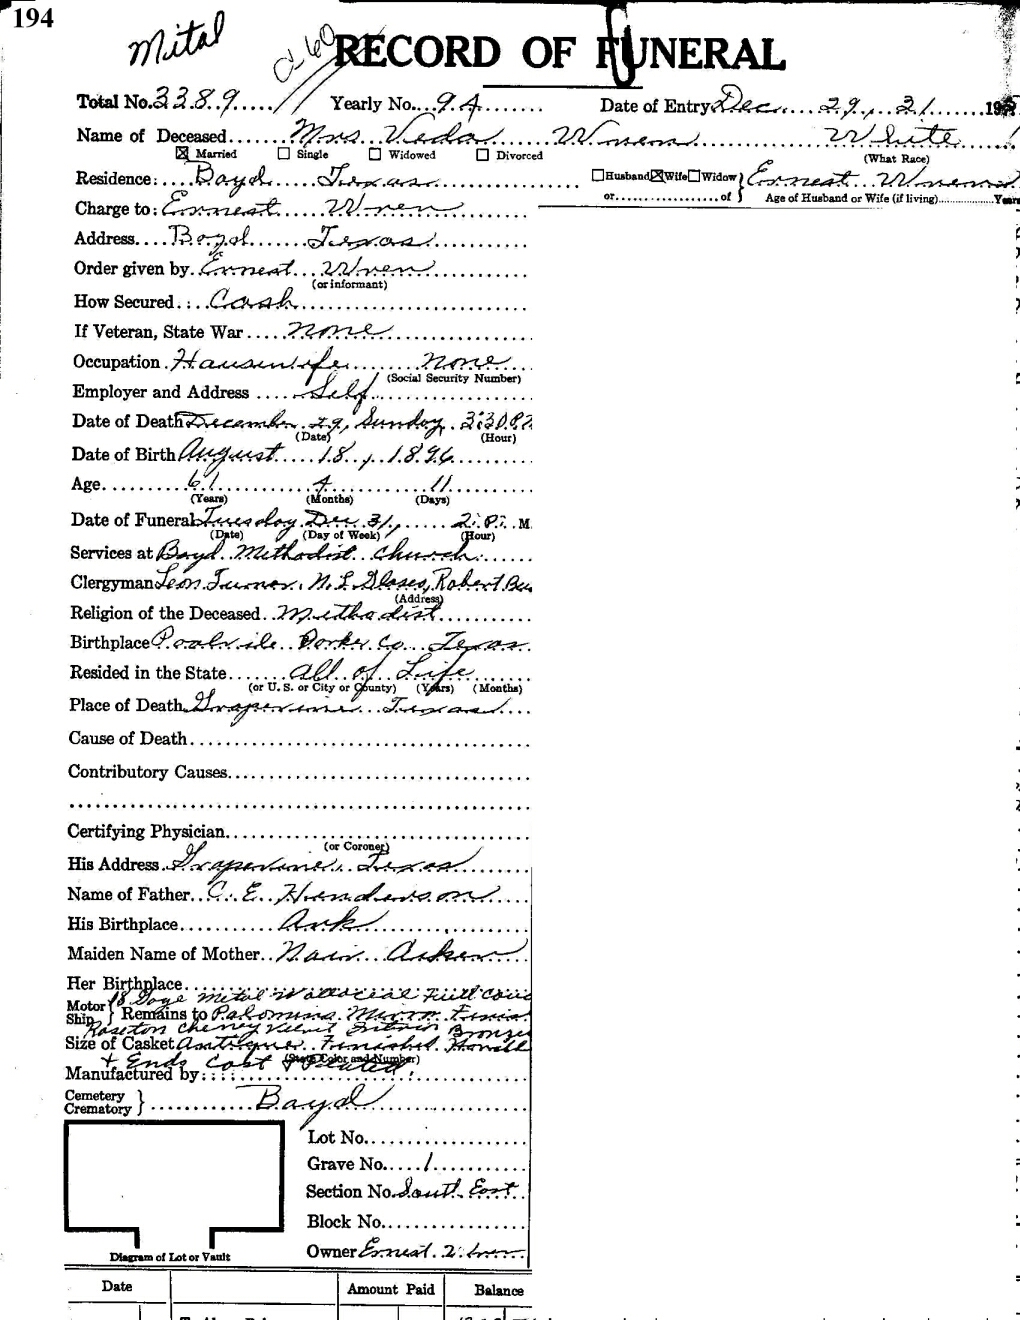 194
Mital
RECORD OF FUNERAL
Total No. 3389 Yearly No. 94 Date of Entry Dec 29, 31 195
Name of Deceased Mrs Veda Wrenn White
☒ Married ☐ Single ☐ Widowed ☐ Divorced (What Race)
Residence: Boyd Texas ☐ Husband ☒ Wife ☐ Widow } Ernest Wrenn
or of } Age of Husband or Wife (if living) Years
Charge to: Ernest Wren
Address Boyd Texas
Order given by Ernest Wren
(or informant)
How Secured Cash
If Veteran, State War none
Occupation Housewife none
(Social Security Number)
Employer and Address Self
Date of Death December 29, Sunday 3:30 P.
(Date) (Hour)
Date of Birth August 18, 1896
Age 61 4 11
(Years) (Months) (Days)
Date of Funeral Tuesday Dec 31, 2:P. M
(Date) (Day of Week) (Hour)
Services at Boyd Methodist Church
Clergyman Leon Turner, N. L. Robert
(Address)
Religion of the Deceased Methodist
Birthplace Poolvile Parker Co. Texas
Resided in the State all of Life
(or U. S. or City or County) (Years) (Months)
Place of Death Grapevine Texas
Cause of Death
Contributory Causes
Certifying Physician
(or Coroner)
His Address Grapevine, Texas
Name of Father C. E. Henderson
His Birthplace Ark
Maiden Name of Mother
Her Birthplace
18 Gage Metal Full
Motor Ship } Remains to Palomina
Velvet Bronze
Size of Casket Finished
(State Color and Number)
& Ends
Manufactured by:
Cemetery Crematory } Boyd
Lot No.
Grave No. 1
Section No. South East
Block No.
Owner Ernest Wren
Diagram of Lot or Vault
Date Amount Paid Balance